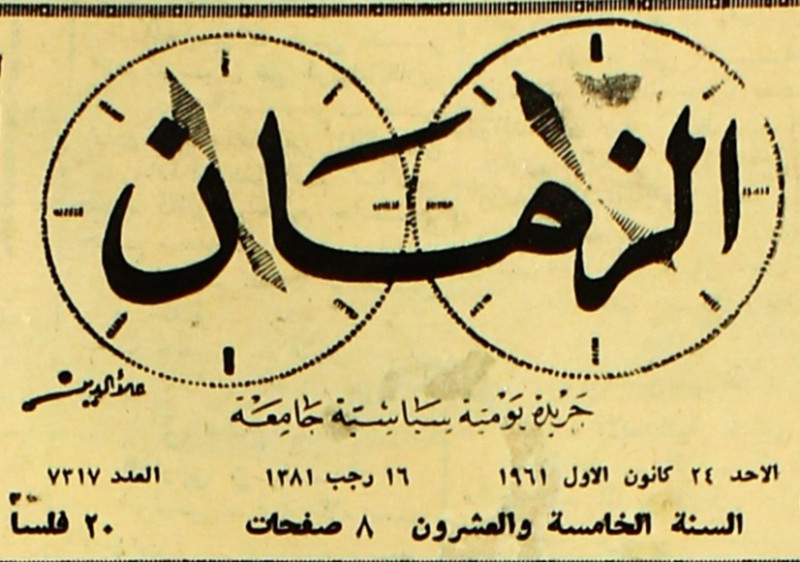 الزمان
علاءالدين
جَريدة يَوْميّة سيَاسيّة جَامِعَة
الاحد ٢٤ كانون الاول ١٩٦١ ١٦ رجب ١٣٨١ العدد ٧٣١٧
السنة الخامسة والعشرون ٨ صفحات ٢٠ فلساً